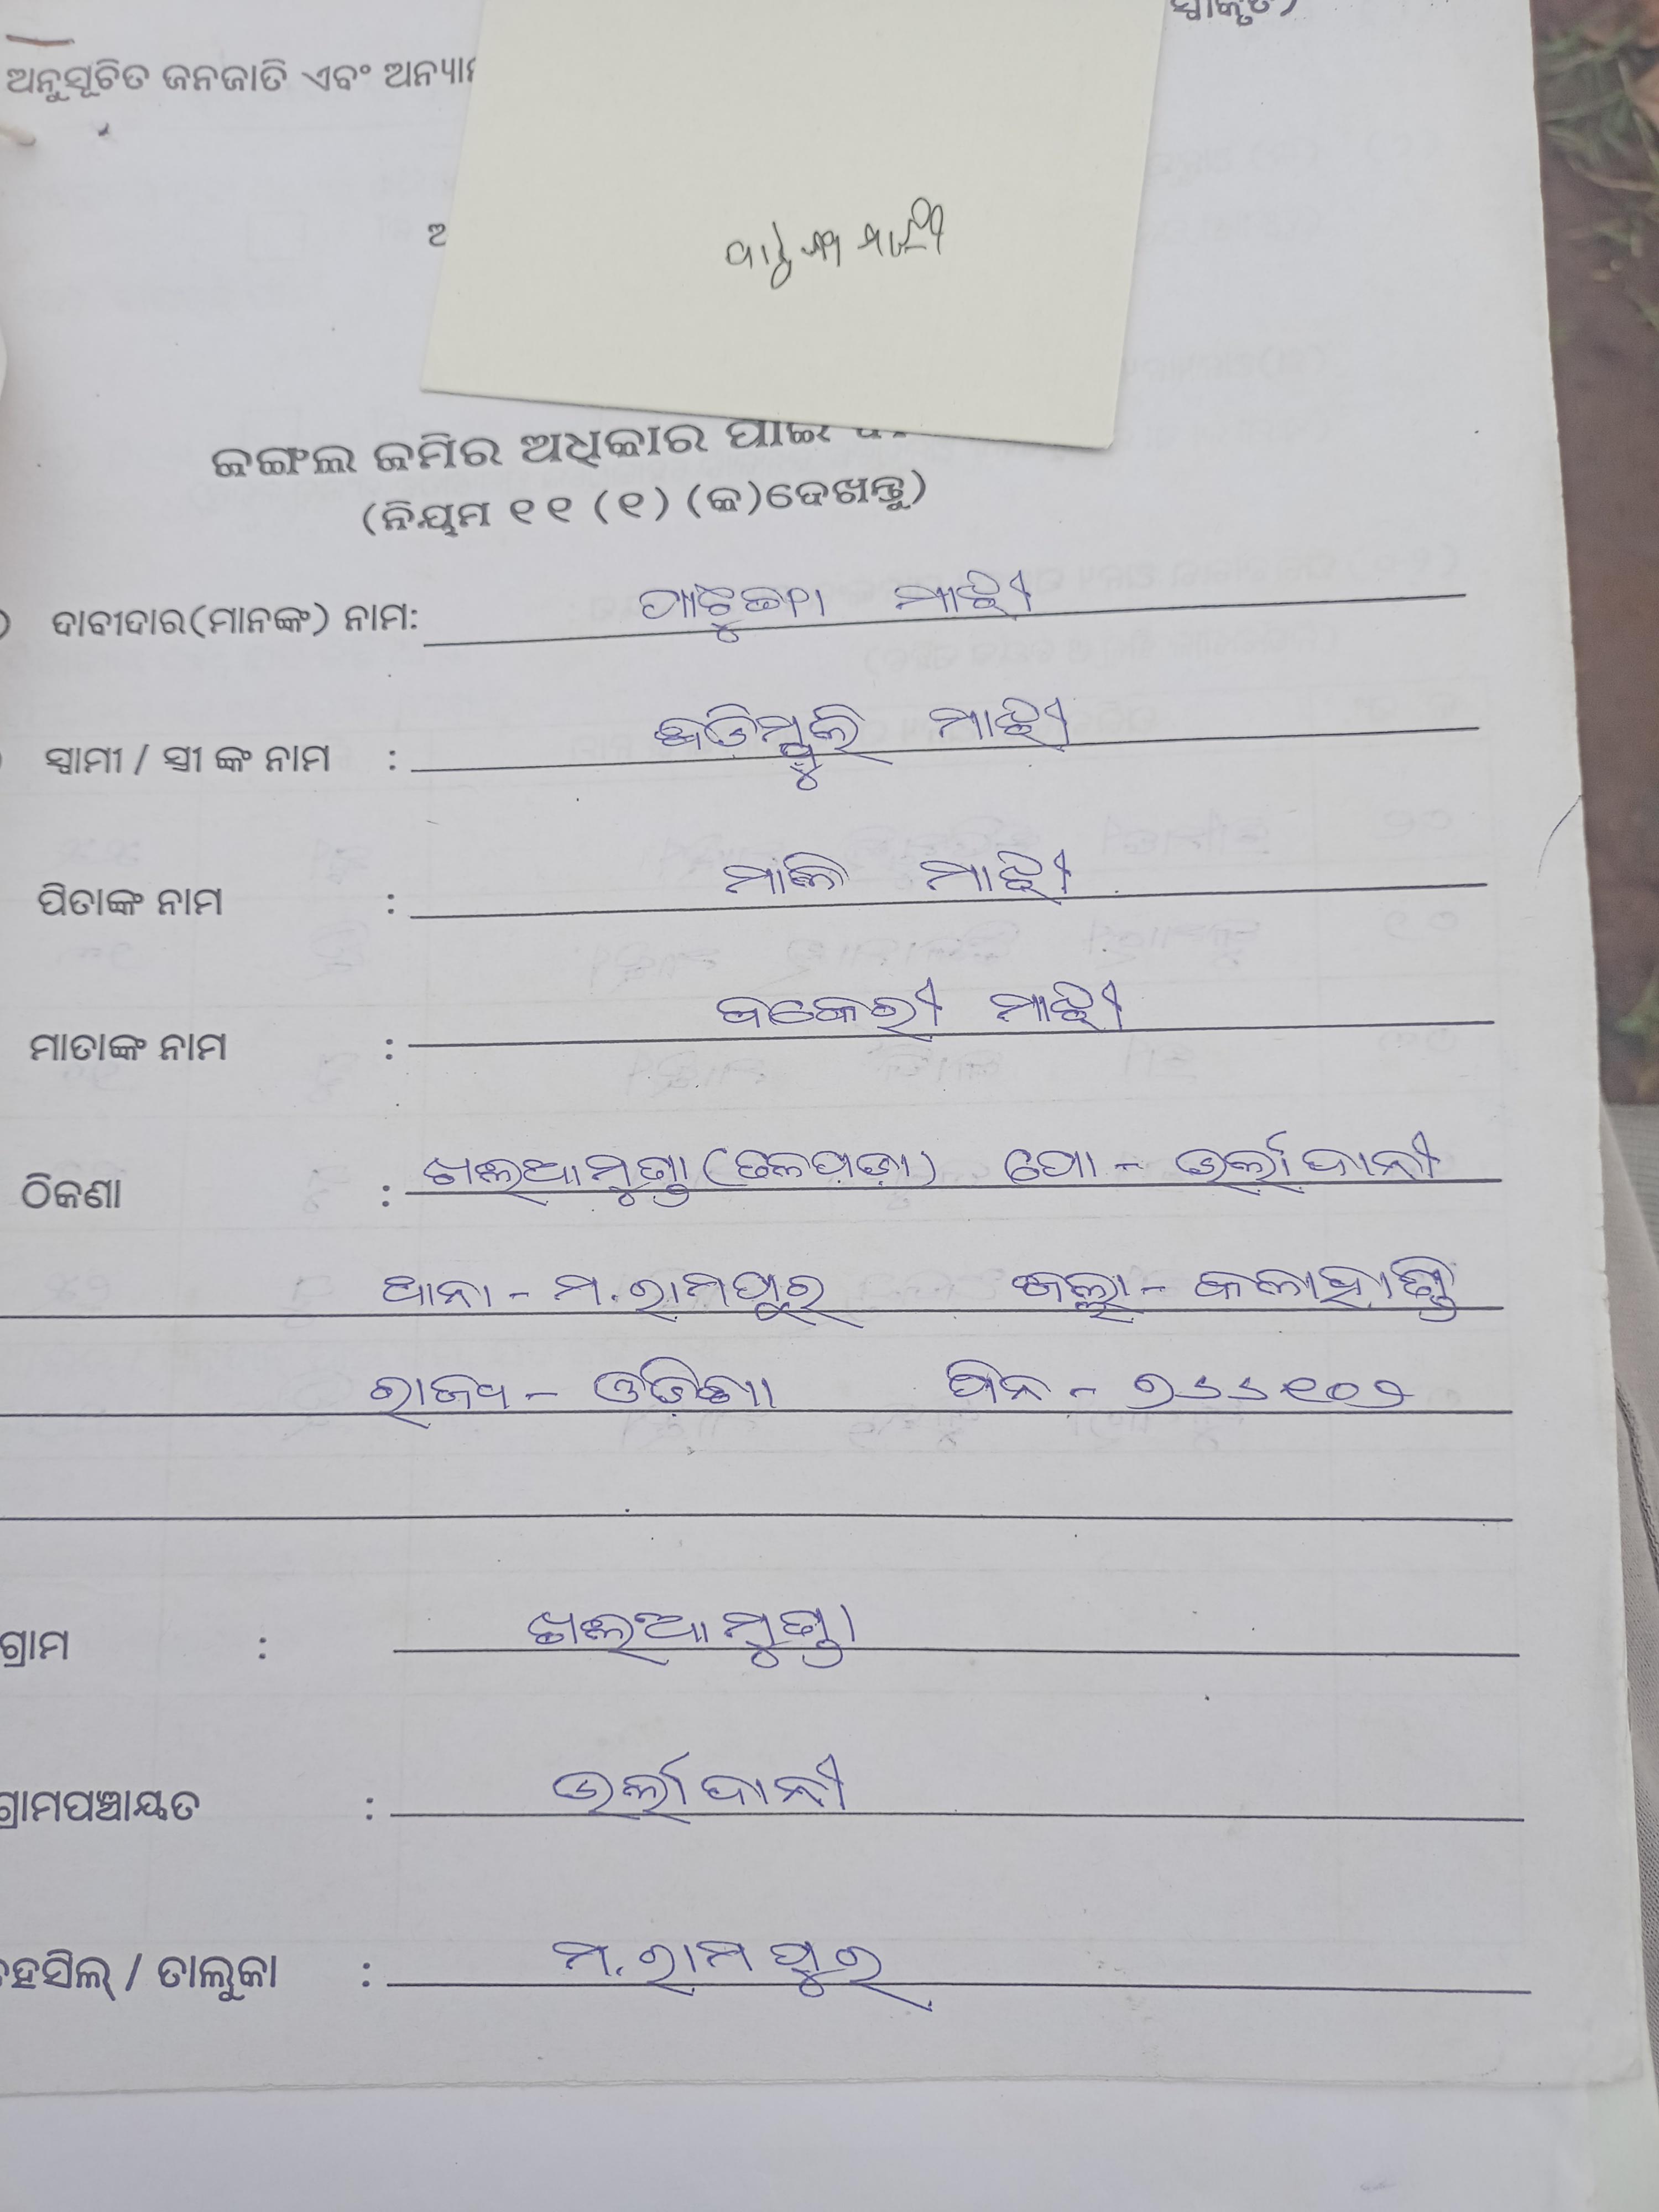 ସ୍ୱୀକୃତ)
ଅନୁସୂଚିତ ଜନଜାତି ଏବଂ
ମାଝୀ
ଜଙ୍ଗଲ ଜମିର ଅଧିକାର ପାଇଁ
(ନିୟମ ୧୧ (୧) (କ)ଦେଖନ୍ତୁ)
ଦାବୀଦାର(ମାନଙ୍କ) ନାମ: ମାଝୀ
ସ୍ୱାମୀ / ସ୍ତ୍ରୀ ଙ୍କ ନାମ : ମାଝୀ
ପିତାଙ୍କ ନାମ : ମାଳି ମାଝୀ
ମାତାଙ୍କ ନାମ : ମାଝୀ
ଠିକଣା : ଖଲିଆମୁଣ୍ଡା (ତଳପଡ଼ା) ପୋ - ଉର୍ଲାଦାନୀ
ଥାନା - ମ.ରାମପୁର ଜିଲ୍ଲା - କଳାହାଣ୍ଡି
ରାଜ୍ୟ - ଓଡ଼ିଶା ପିନ - ୭୬୬୧୦୨
ଗ୍ରାମ : ଖଲିଆମୁଣ୍ଡା
ଗ୍ରାମପଞ୍ଚାୟତ : ଉର୍ଲାଦାନୀ
ତହସିଲ୍ / ତାଲୁକା : ମ.ରାମପୁର